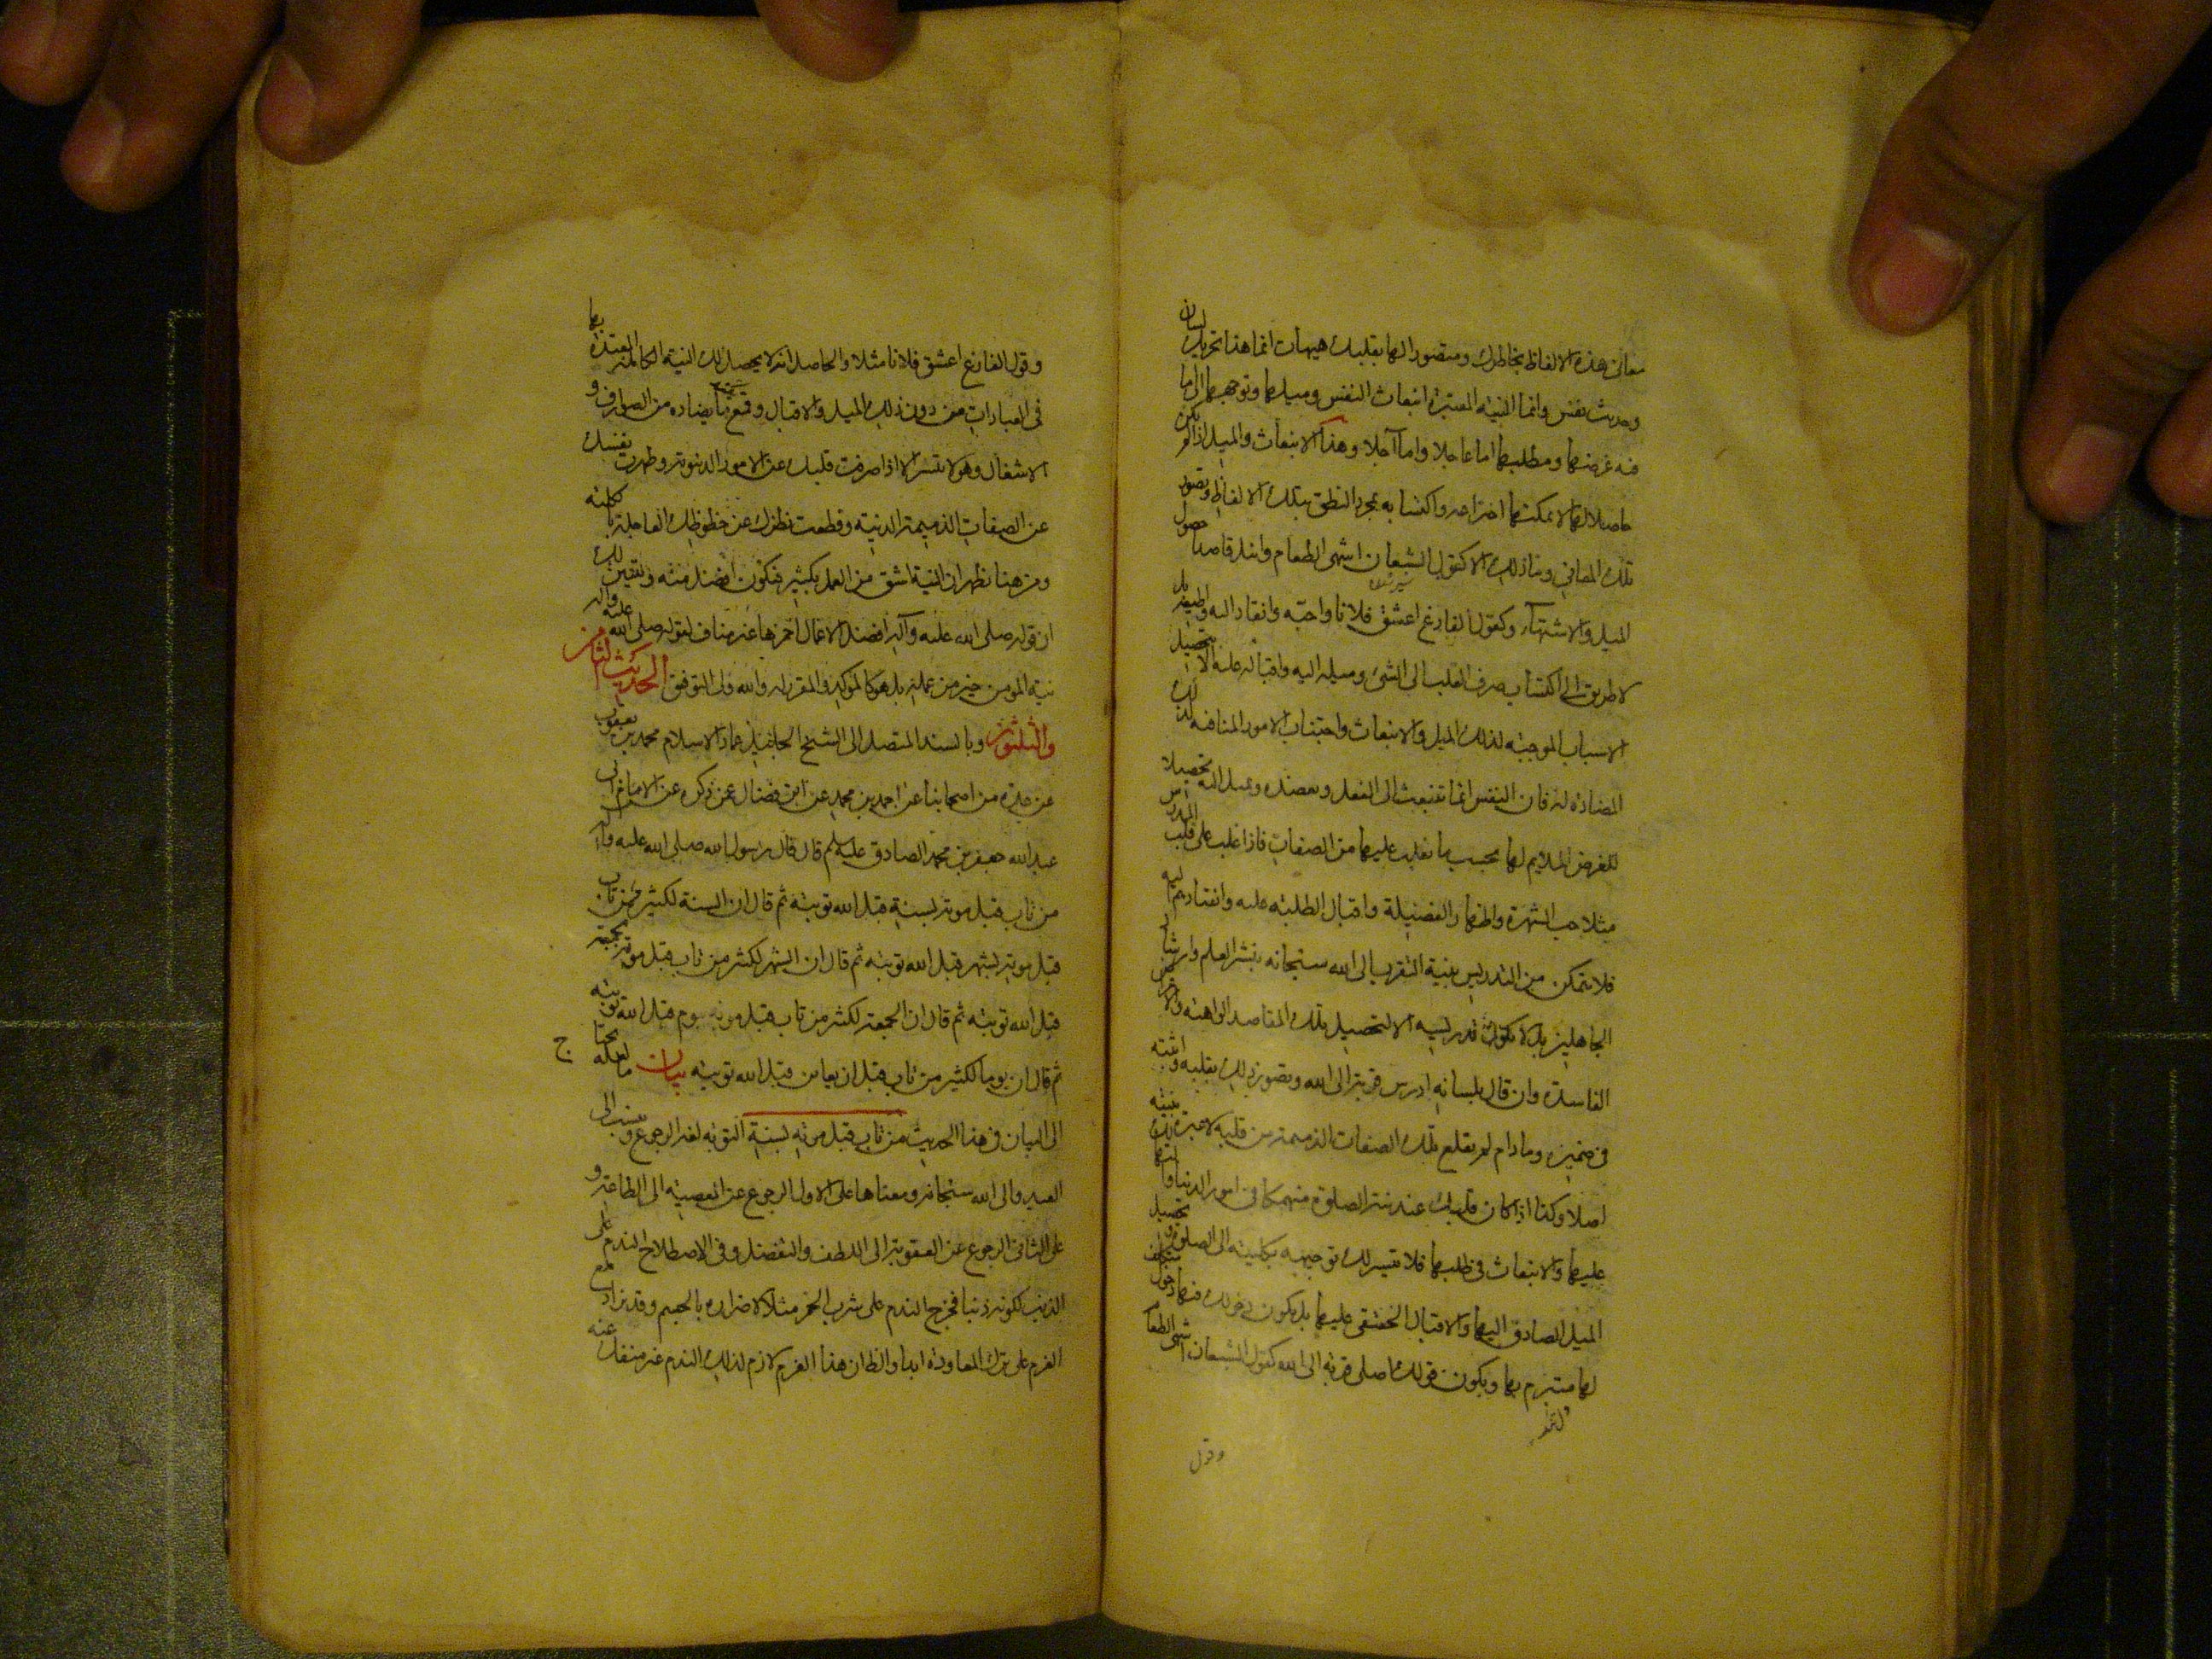 معانى هذه الالفاظ بخاطرك ومتصورا لها بقلبك هيهات انما هذا تحريك لسان
وحديث نفس وانما النية المعتبرة انبعاث النفس وميلها وتوجهها الى ما
فيه غرضها ومطلبها اما عاجلا واما آجلا وهذا الانبعاث والميل اذا لم يكن
حاصلا لها لا يمكنها اختراعه واكتسابه بمجرد النطق بتلك الالفاظ وتصور
تلك المعانى وما ذلك الا كقول الشبعان اشتهى الطعام واميل قاصدا حصول
الميل والاشتهاء وكقول الفارغ اعشق فلانا واحبه وانقاد اليه واطيعه بل
لا طريق الى اكتساب صرف القلب الى الشئ وميله اليه واقباله عليه الا بتحصيل
الاسباب الموجبة لذلك الميل والانبعاث واجتناب الامور المنافية لذلك
المضادة له فان النفس انما تنبعث الى الفعل وتقصده وتميل اليه تحصيلا
للغرض الملايم لها بحسب ما يغلب عليها من الصفات فاذا غلب على قلب المدرس
مثلا حب الشهرة واظهار الفضيلة واقبال الطلبة عليه وانقيادهم اليه
فلا يتمكن من التدريس بنية التقرب الى الله سبحانه بنشر العلم وارشاد
الجاهلين بل لا يكون تدريسه الا لتحصيل تلك المقاصد الواهية والاغراض
الفاسدة وان قال بلسانه ادرس قربة الى الله وتصور ذلك بقلبه واثبته
فى ضميره وما دام لم يقلع تلك الصفات الذميمة من قلبه لا عبرة بنيته
اصلا وكذا اذا كان قلبك عند نية الصلوة منهمكا فى امور الدنيا والتهالك
عليها والانبعاث فى طلبها فلا يتيسر لك توجيهه بكليته الى الصلوة وتحصيل
الميل الصادق اليها والاقبال الحقيقى عليها بل يكون دخولك فيها دخول متكلف
لها متبرم بها ويكون قولك اصلى قربة الى الله كقول الشبعان اشتهى الطعام
وقول
وقول الفارغ اعشق فلانا مثلا والحاصل انه لا يحصل لك النية الكاملة المعتد بها
فى العبادات من دون ذلك الميل والاقبال وقمع ما يضاده من الصوارف و
الاشغال وهو لا يتيسر الا اذا صرفت قلبك عن الامور الدنيوية وطهرت نفسك
عن الصفات الذميمة الدنية وقطعت نظرك عن حظوظك العاجلة بالكلية
ومن هنا يظهر ان النية اشق من العمل بكثير فتكون افضل منه ويتبين لك
ان قوله صلى الله عليه وآله افضل الاعمال احمزها غير مناف لقوله صلى الله عليه وآله
نية المؤمن خير من عمله بل هو كالمؤكد والمقرر له والله ولى التوفيق الحديث الثامن
والثلثون وبالسند المتصل الى الشيخ الجليل عماد الاسلام محمد بن يعقوب
عن عدة من اصحابنا عن احمد بن محمد عن ابن فضال عمن ذكره عن الامام ابى
عبدالله جعفر بن محمد الصادق عليه السلام قال قال رسول الله صلى الله عليه وآله
من تاب قبل موته بسنة قبل الله توبته ثم قال ان السنة لكثير من تاب
قبل موته بشهر قبل الله توبته ثم قال ان الشهر لكثير من تاب قبل موته بجمعة
قبل الله توبته ثم قال ان الجمعة لكثير من تاب قبل موته بيوم قبل الله توبته
ثم قال ان يوما لكثير من تاب قبل ان يعاين قبل الله توبته بيان ما لعله يحتاج
الى البيان فى هذا الحديث من تاب قبل موته بسنة التوبة لغة الرجوع وينسب الى
العبد والى الله سبحانه ومعناها على الاول الرجوع عن المعصية الى الطاعة و
على الثانى الرجوع عن العقوبة الى اللطف والتفضل وفى الاصطلاح الندم على
الذنب لكونه ذنبا فخرج الندم على شرب الخمر مثلا لاضراره بالجسم وقد يزاد مع
العزم على ترك المعاودة ابدا والظ ان هذا العزم لازم لذلك الندم غير منفك عنه